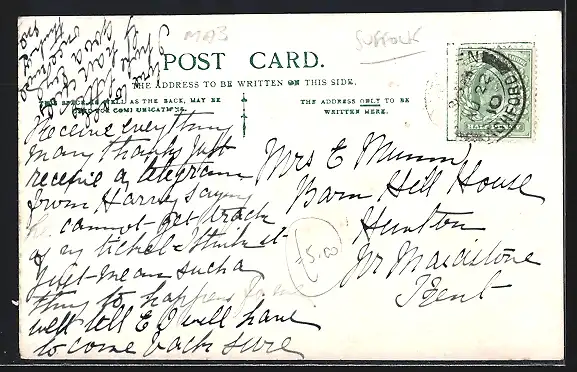 MA3
SUFFOLK
POST CARD.
THE ADDRESS TO BE WRITTEN ON THIS SIDE.
AS WELL AS THE BACK, MAY BE
COMMUNICATIONS.
THE ADDRESS ONLY TO BE
WRITTEN HERE.
Receive everything
many thanks Just
receive a telegram
from Harry saying
cannot get track
of my ticket I think it
Just mean such a
thing to happen
well tell E I will have
to come back sure
Mrs E Munn
Barn Hill House
Hunton
Nr Maidstone
Kent
5.00
I have
you a